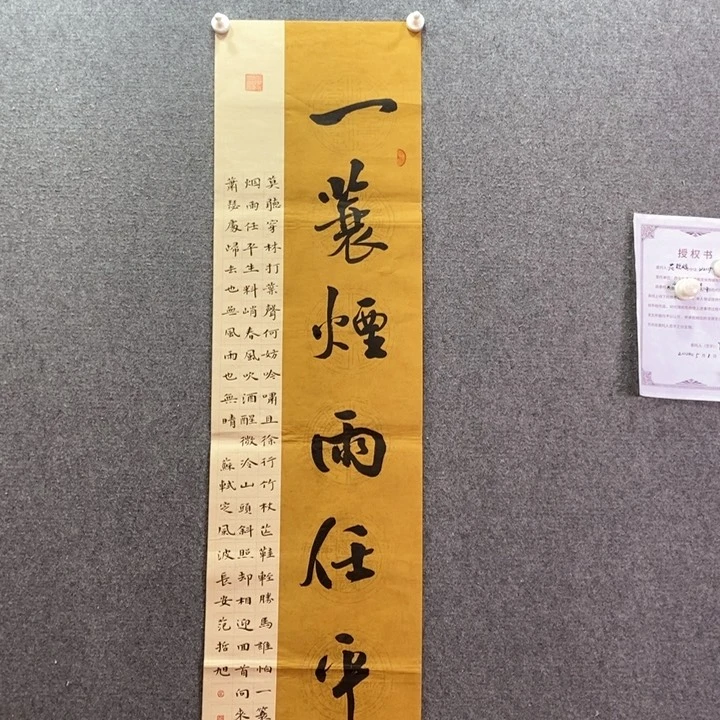 一蓑煙雨任平
莫聽穿林打葉聲何妨吟嘯且徐行竹杖芒鞋輕勝馬誰怕一蓑
烟雨任平生料峭春風吹酒醒微冷山頭斜照却相迎回首向来
蕭瑟處歸去也無風雨也無晴 蘇軾定風波長安范哲旭
授权书